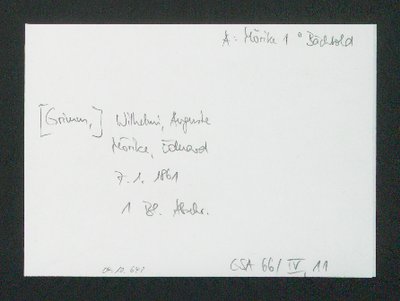 A: Mörike 1 a Bächtold
[Grimm,] Wilhelmi, Auguste
Mörike, Eduard
7. 1. 1861
1 Bl. Abschr.
GSA 66/ IV, 11